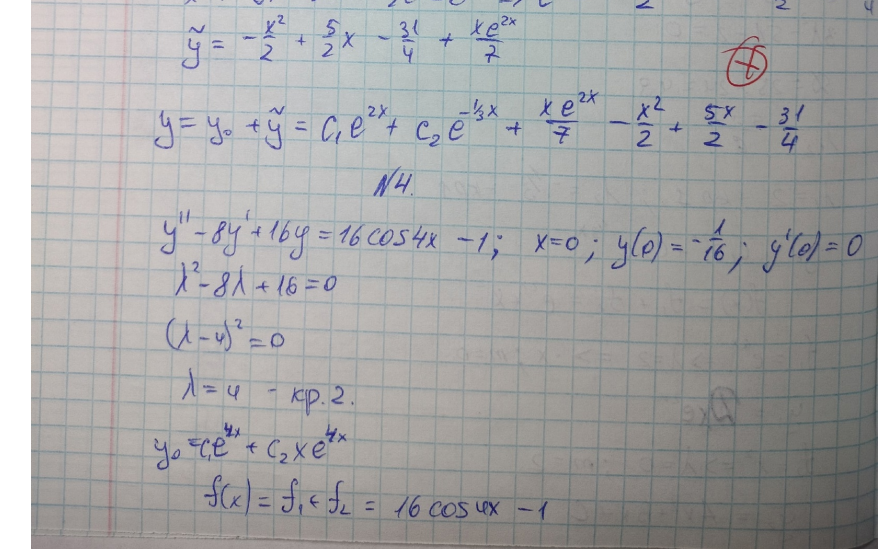 ỹ = -x²/2 + 5/2 x - 31/4 + xe²ˣ/7
y = y₀ + ỹ = C₁e^{2x} + C₂e^{-1/3x} + xe^{2x}/7 - x²/2 + 5x/2 - 31/4
N4.
y'' - 8y' + 16y = 16cos4x - 1; x=0; y(0) = -1/16; y'(0) = 0
λ² - 8λ + 16 = 0
(λ-4)² = 0
λ = 4 - кр. 2.
y₀ = C₁e^{4x} + C₂xe^{4x}
f(x) = f₁ + f₂ = 16cos4x - 1